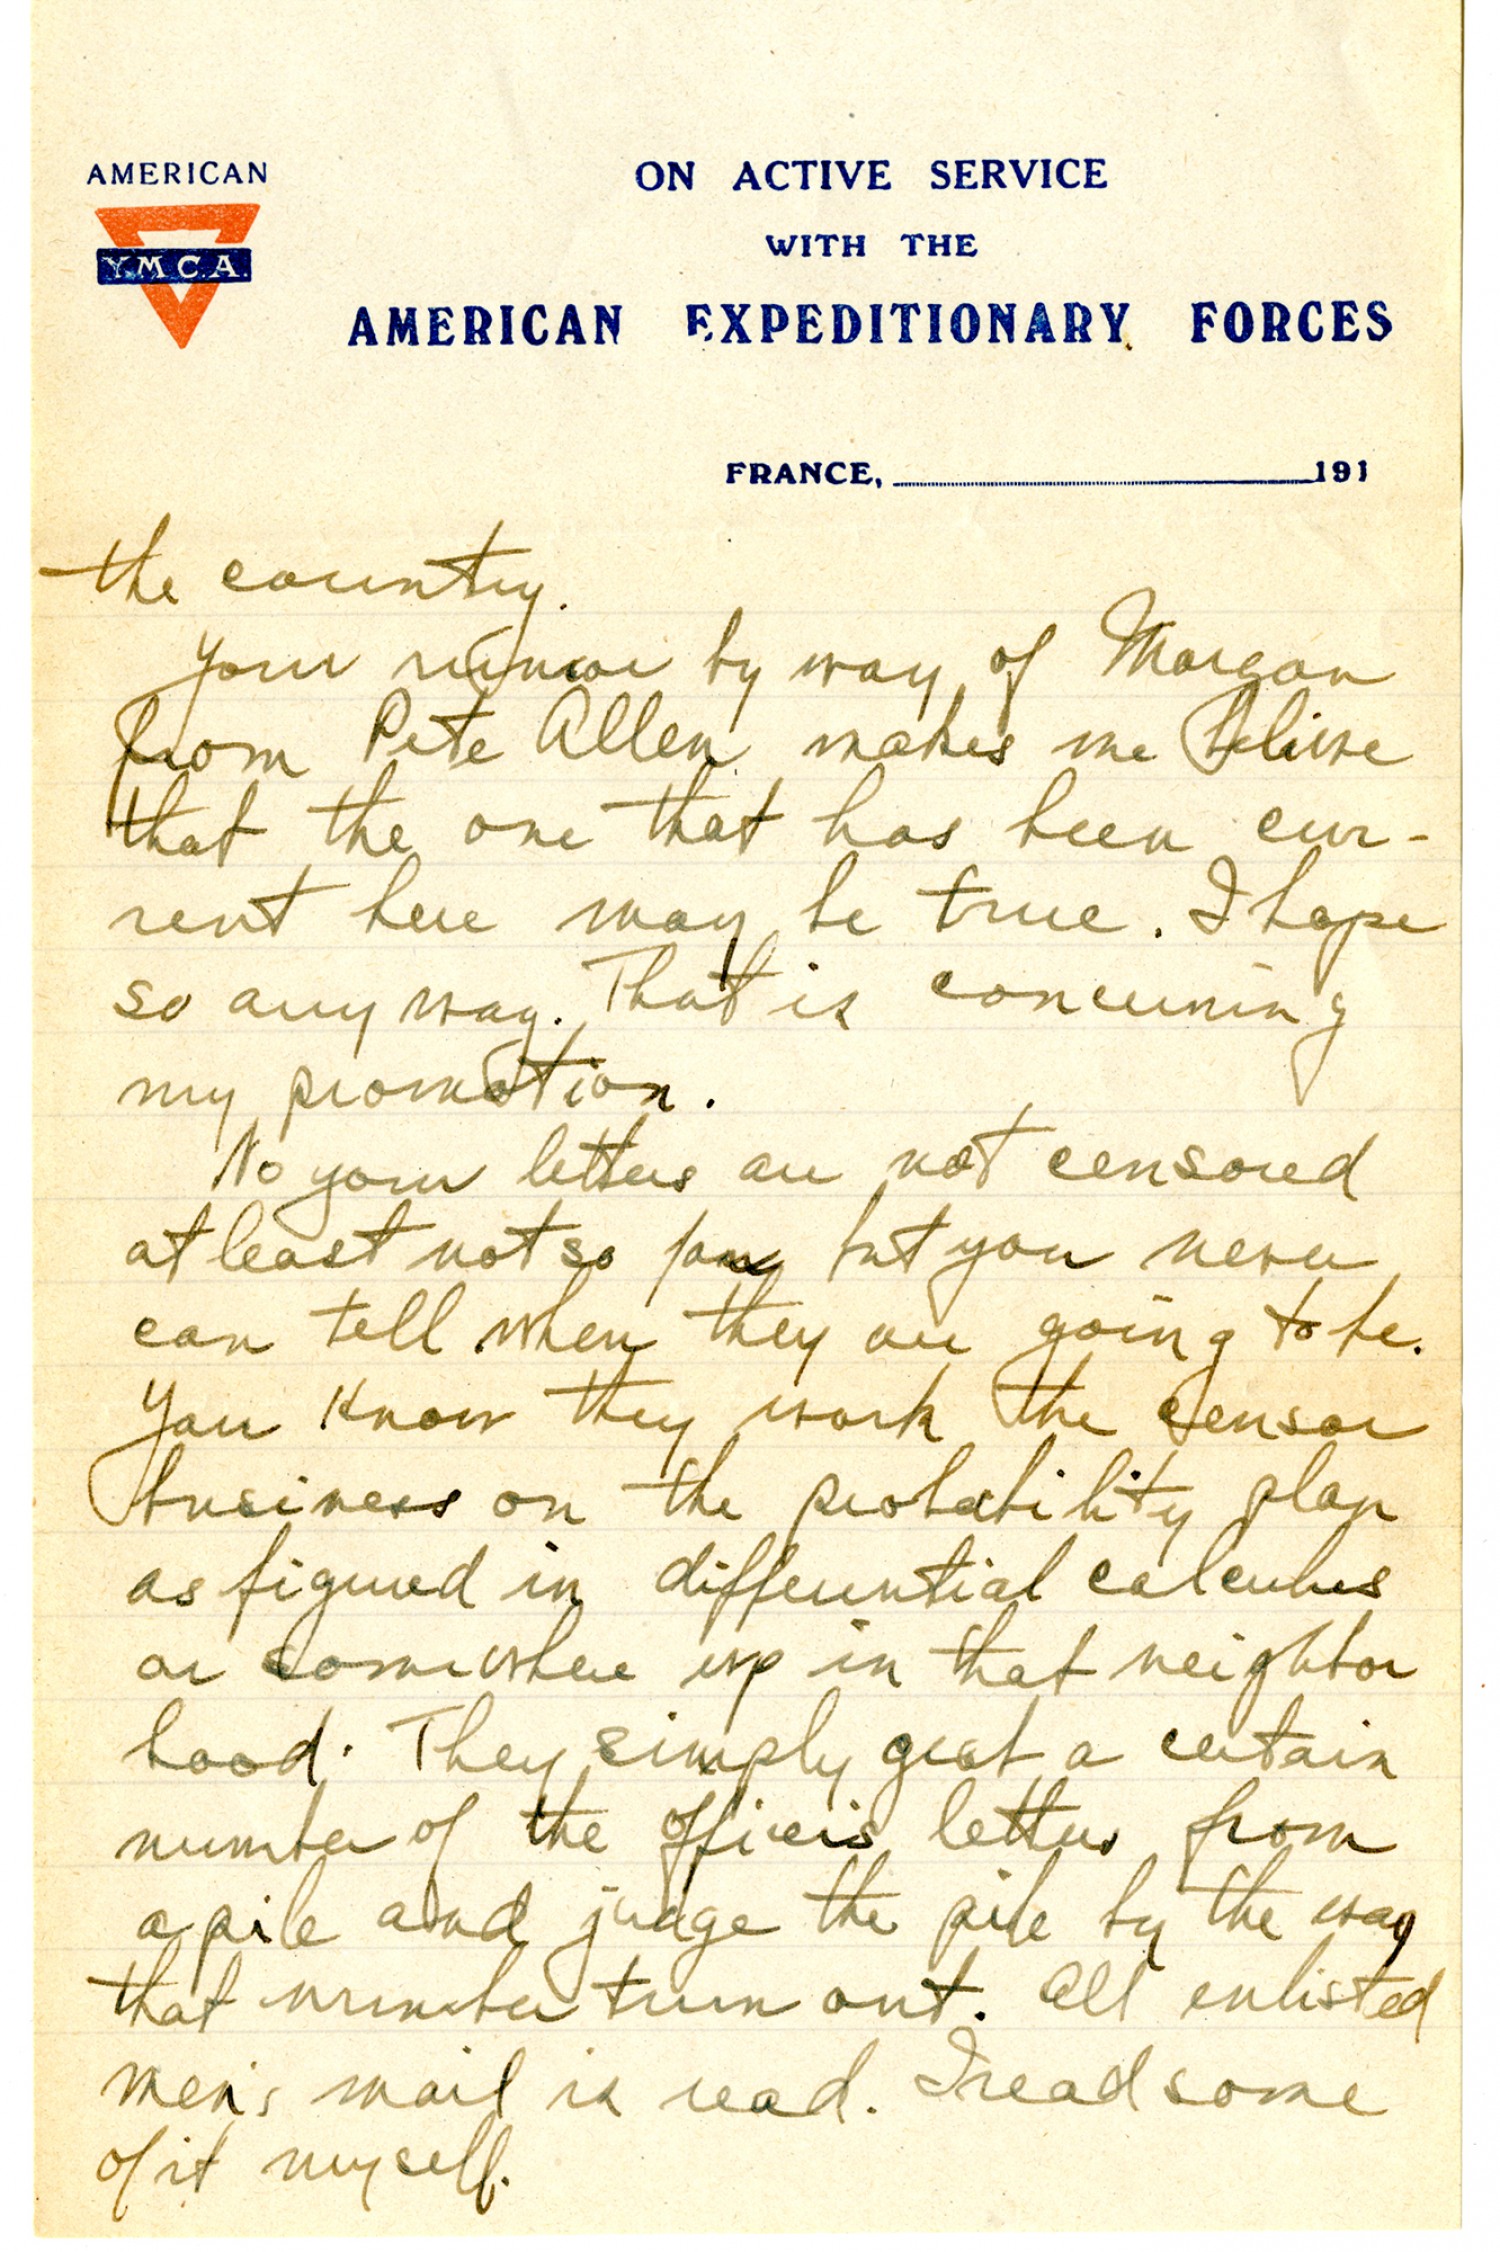 AMERICAN
Y.M.C.A.
ON ACTIVE SERVICE
WITH THE
AMERICAN EXPEDITIONARY FORCES
FRANCE, 191
the country.
Your rumor by way of Morgan
from Pete Allen makes me believe
that the one that has been cur-
rent here may be true. I hope
so anyway. That is concerning
my promotion.
No your letters are not censored
at least not so far but you never
can tell when they are going to be.
You know they work the censor
business on the probability plan
as figured in differential calculus
or somewhere up in that neighbor
hood. They simply grab a certain
number of the officers letters from
a pile and judge the pile by the way
that number turn out. All enlisted
men's mail is read. I read some
of it myself.